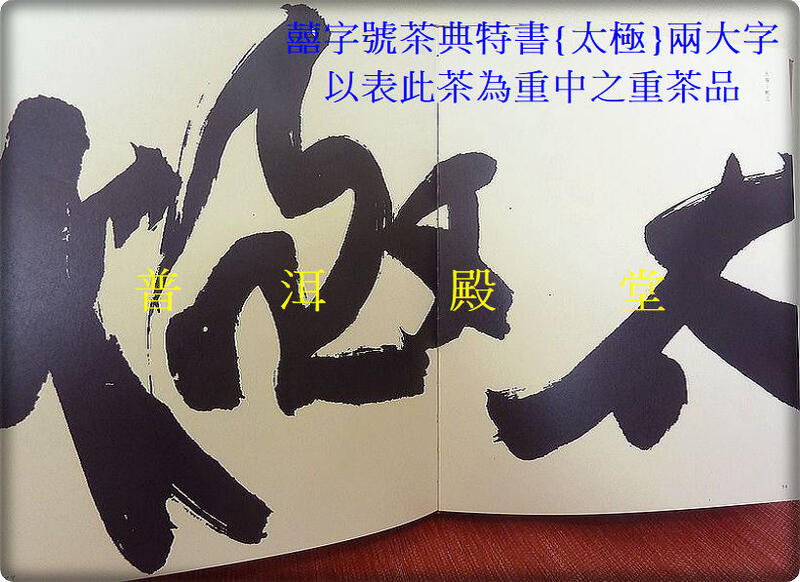 囍字號茶典特書{太極}兩大字
以表此茶為重中之重茶品
太極
普洱殿堂